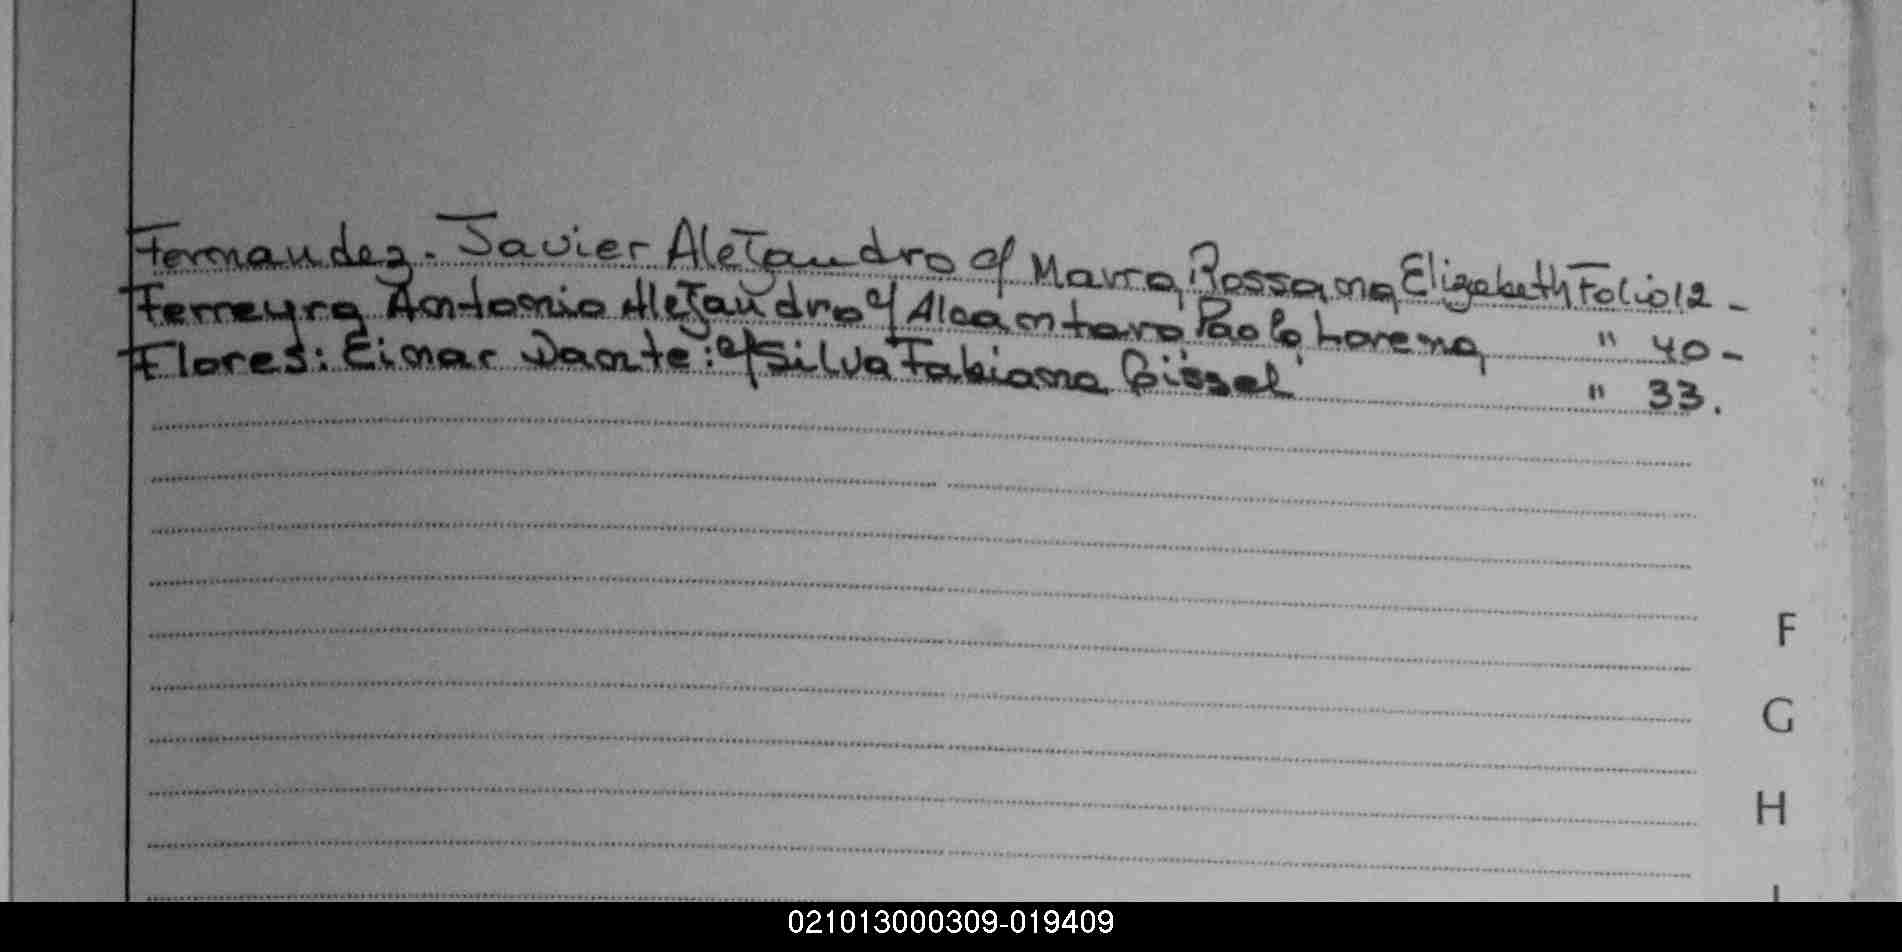 Fernandez. Javier Alejandro c/ Marra, Rossana, Elizabeth Folio 12 -
Ferreyra Antonio Alejandro c/ Alcantara Paola Lorena " 40 -
Flores: Eimar Dante: c/ Silva Fabiana Gissel " 33.
F
G
H
I
021013000309-019409